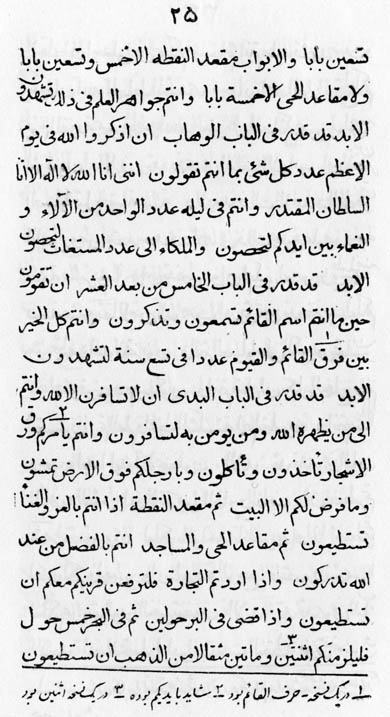 ٢٥
تسعين بابا والابواب مقعد النقطه الاخمس وتسعين بابا
ولا مقاعد الحى الاخمسة بابا وانتم جواهر العلم فى ذلك تشهدون
الابد قد قدر فى الباب الوهاب ان اذكروا الله فى يوم
الاعظم عدد كل شئ بما انتم تقولون اننى انا الله لا اله الا انا
السلطان المقتدر وانتم فى ليله عدد الواحد من الآلاء و
النعماء بين ايديكم لتحصون والملكاء الى عدد المستغاث لتحصون
الابد قد قدر فى الباب الخامس من بعد العشر ان تقومون
حين ما انتم اسم القائم تسمعون وتذكرون وانتم كل الخير
بين فرق ١ القائم والقيوم عددا فى تسع سنة لتشهدون
الابد قد قدر فى الباب البدى ان لا تسافرن الا لله وانتم
الى من يظهره الله ومن يومن به لتسافرون وانتم يا مركم ٢ ورق
الاشجار تأخذون وتأكلون وبارجلكم فوق الارض تمشون
وما فرض لكم الا البيت ثم مقعد النقطة اذا انتم بالعز والغناء
تستطيعون ثم مقاعد الحى والمساجد انتم بالفضل من عند
الله تدركون واذا اردتم التجارة فلترفعن قرينكم معكم ان
تستطيعون واذا قضى فى البر حولين ثم فى البحر خمس حول
فليلزمنكم اثنتين ٣ وماتين مثقالا من الذهب ان تستطيعون
١ در يك نسخه - حرف القائم بود ٢ شايد بايديكم بوده ٣ در يك نسخه اثنين بود